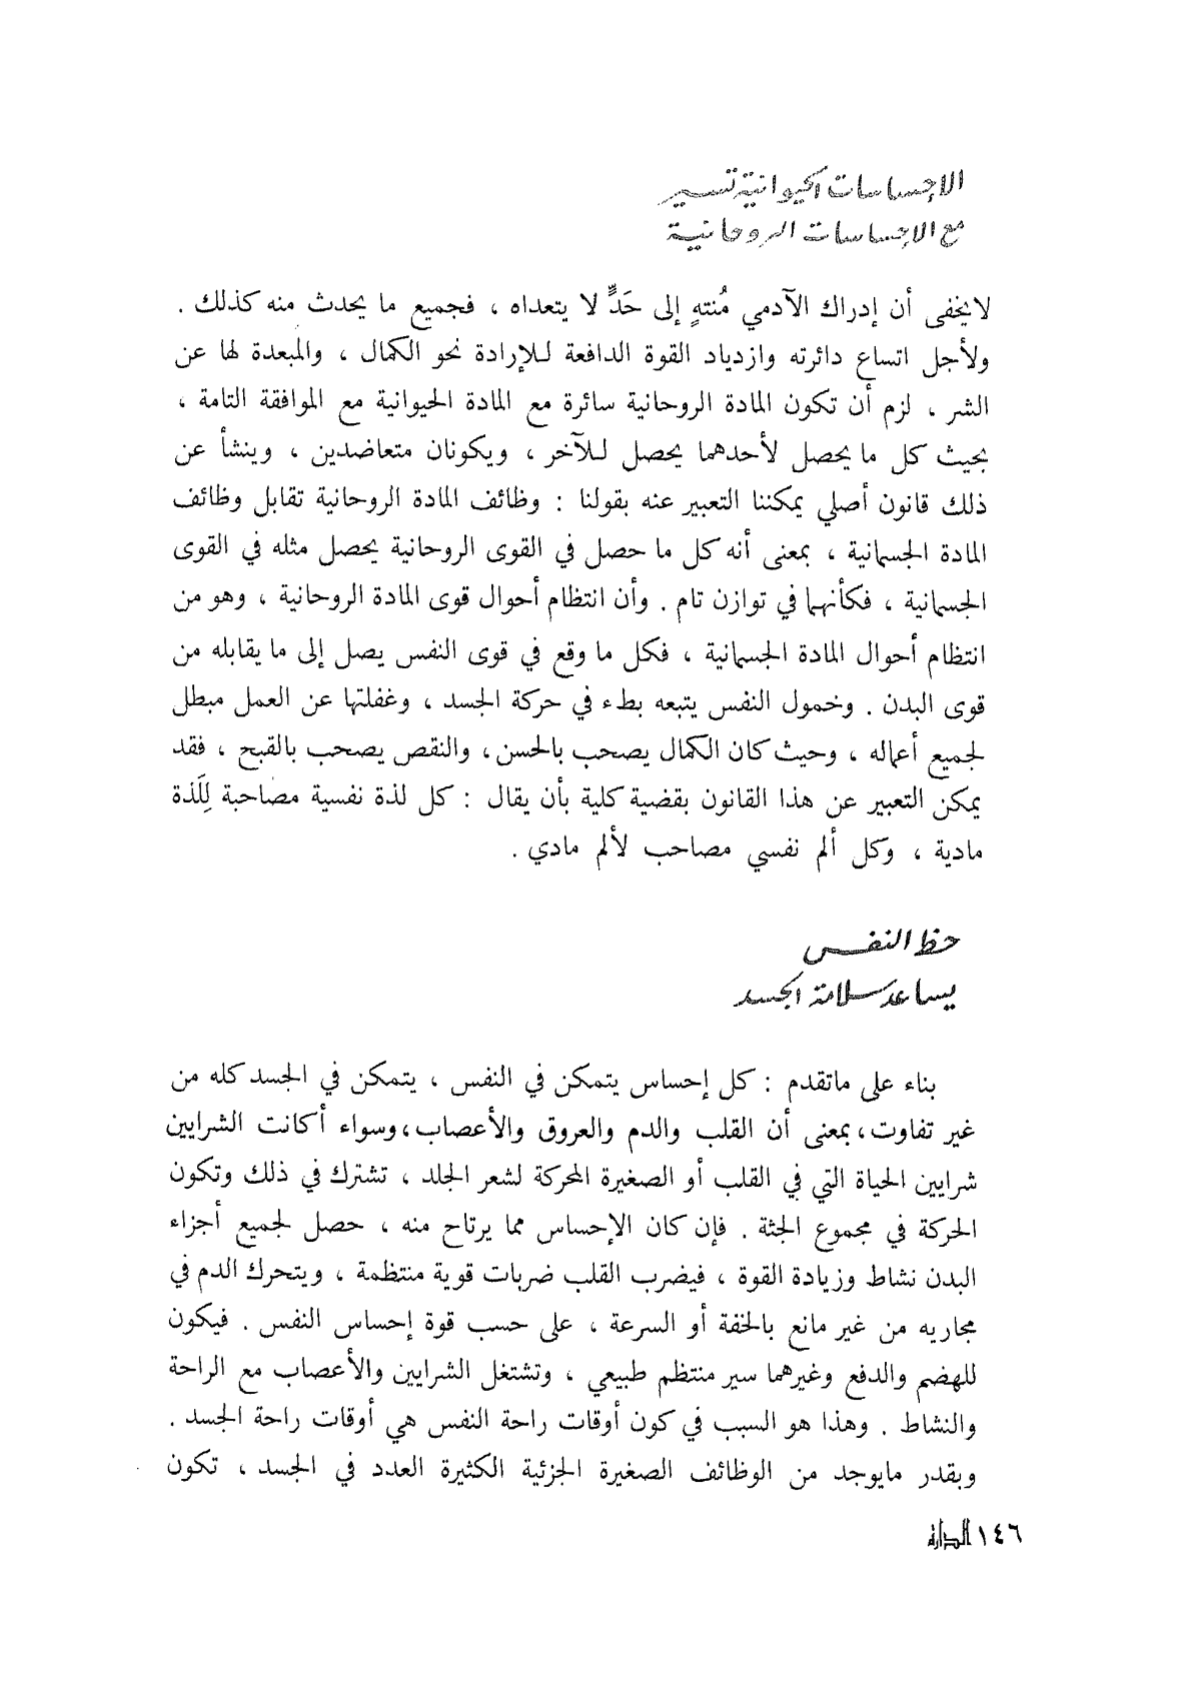 الإحساسات الحيوانية تسير
مع الإحساسات الروحانية
لايخفى أن إدراك الآدمي مُنتهٍ إلى حَدٍّ لا يتعداه ، فجميع ما يحدث منه كذلك .
ولأجل اتساع دائرته وازدياد القوة الدافعة للإرادة نحو الكمال ، والمبعدة لها عن
الشر ، لزم أن تكون المادة الروحانية سائرة مع المادة الحيوانية مع الموافقة التامة ،
بحيث كل ما يحصل لأحدهما يحصل للآخر ، ويكونان متعاضدين ، وينشأ عن
ذلك قانون أصلي يمكننا التعبير عنه بقولنا : وظائف المادة الروحانية تقابل وظائف
المادة الجسمانية ، بمعنى أنه كل ما حصل في القوى الروحانية يحصل مثله في القوى
الجسمانية ، فكأنهما في توازن تام . وأن انتظام أحوال قوى المادة الروحانية ، وهو من
انتظام أحوال المادة الجسمانية ، فكل ما وقع في قوى النفس يصل إلى ما يقابله من
قوى البدن . وخمول النفس يتبعه بطء في حركة الجسد ، وغفلتها عن العمل مبطل
لجميع أعماله ، وحيث كان الكمال يصحب بالحسن، والنقص يصحب بالقبح ، فقد
يمكن التعبير عن هذا القانون بقضية كلية بأن يقال : كل لذة نفسية مصاحبة لِلَذة
مادية ، وكل ألم نفسي مصاحب لألم مادي .
حظ النفس
يساعد سلامة الجسد
بناء على ماتقدم : كل إحساس يتمكن في النفس ، يتمكن في الجسد كله من
غير تفاوت، بمعنى أن القلب والدم والعروق والأعصاب، وسواء أكانت الشرايين
شرايين الحياة التي في القلب أو الصغيرة المحركة لشعر الجلد ، تشترك في ذلك وتكون
الحركة في مجموع الجثة . فإن كان الإحساس مما يرتاح منه ، حصل لجميع أجزاء
البدن نشاط وزيادة القوة ، فيضرب القلب ضربات قوية منتظمة ، ويتحرك الدم في
مجاريه من غير مانع بالخفة أو السرعة ، على حسب قوة إحساس النفس . فيكون
للهضم والدفع وغيرهما سير منتظم طبيعي ، وتشتغل الشرايين والأعصاب مع الراحة
والنشاط . وهذا هو السبب في كون أوقات راحة النفس هي أوقات راحة الجسد .
وبقدر مايوجد من الوظائف الصغيرة الجزئية الكثيرة العدد في الجسد ، تكون
١٤٦ الدارة